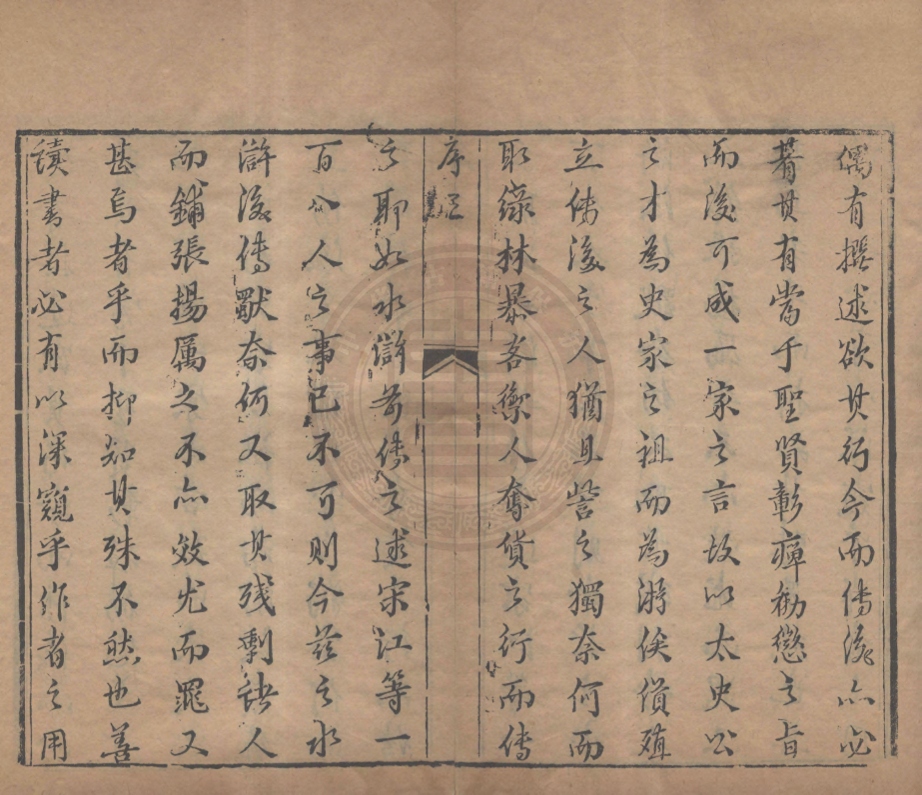 偶有撰述欲其行今而傳後亦必
著其有當于聖賢彰癉勸懲之旨
而後可成一家之言故以太史公
之才為史家之祖而為游俠貨殖
立傳後之人猶且訾之獨奈何而
取綠林暴客禦人奪貨之行而傳
序
之耶如水滸前傳之述宋江等一
百八人之事已不可則今茲之水
滸後傳厭奈何又取其殘剩諸人
而鋪張揚厲之不亦效尤而罪又
甚焉者乎而抑知其殊不然也善
讀書者必有以深窺乎作者之用